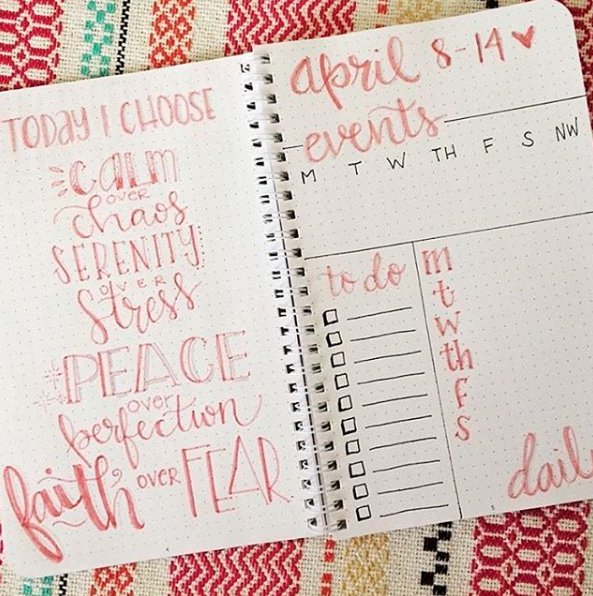 TODAY I CHOOSE
CALM
OVER
chaos
SERENITY
OVER
Stress
PEACE
over
perfection
faith OVER FEAR
april 8-14
events
M T W TH F S NW
to do
m
t
w
th
f
s
dail